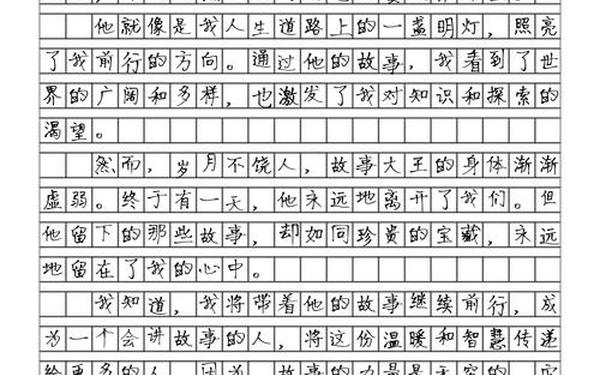 他就像是我人生道路上的一盏明灯，照亮
了我前行的方向。通过他的故事，我看到了世
界的广阔和多样，也激发了我对知识和探索的
渴望。
然而，岁月不饶人，故事大王的身体渐渐
虚弱。终于有一天，他永远地离开了我们。但
他留下的那些故事，却如同珍贵的宝藏，永远
地留在了我的心中。
我知道，我将带着他的故事继续前行，成
为一个会讲故事的人，将这份温暖和智慧传递
给更多的人